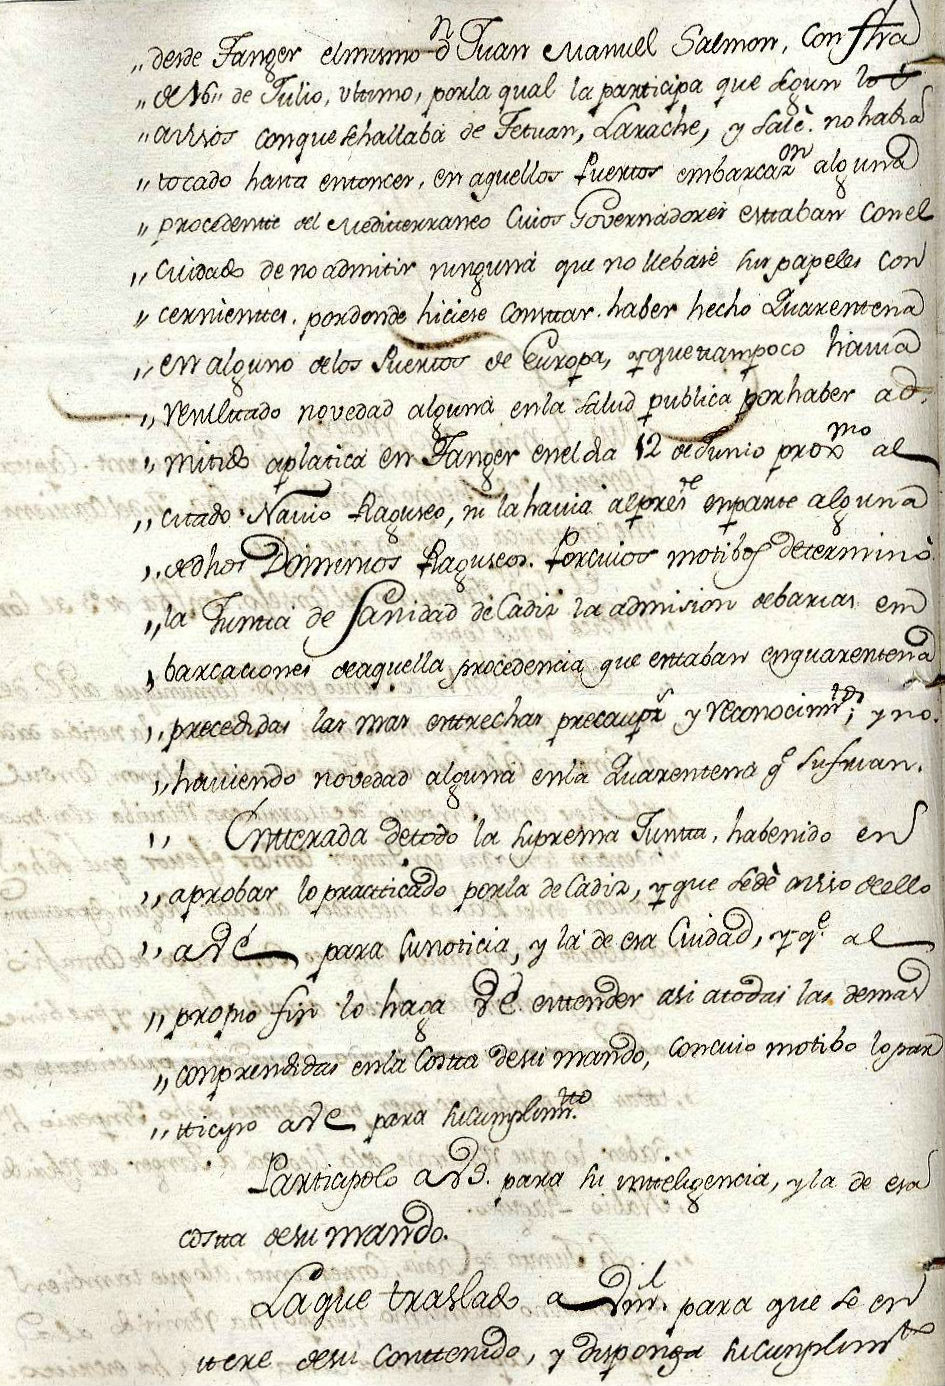 „ desde Tanger el mismo Dn Juan Manuel Salmon, con ftra
„ de 16„ de Julio, ultimo, por la qual la participa que segun los
„ avisos con que se hallaba de Tetuan, Larache, y Salè. no habia
„ tocado hasta entonces, en aquellos Puertos embarcazon alguna
„ procedente del Mediterraneo Cuios Governadores esttaban con el
„ Cuidado de no admitir ninguna que no llebase sus papeles con
„ cernienttes. por donde hiciese Consttar. haber hecho Quarentena
„ en alguno de los Puertos de Europa, y que tampoco havia
„ resultado novedad alguna en la salud publica por haber ad.
„ mitido a platica en Tanger en el dia 12 de Junio proxmo al
„ citado Navio Raguseo, ni la havia al preste en parte alguna
„ de dhos Dominios Raguseos. Por cuios motibos determinò
„ la Juntta de Sanidad de Cadiz la admision de barias em
„ barcaciones de aquella procedencia que esttaban en quarentena
„ precedidas las mas esttrechas precauzs y reconocimtos; y no.
„ haviendo novedad alguna en la Quarentena qe sufrian.
„ Entterada de todo la suprema Juntta, ha benido en
„ aprobar lo practticado por la de Cadiz, y que se dè aviso de ello
„ a VE para su noticia, y la de esa Ciudad, y qe. al
„ propio fin lo haga VE. enttender asi a todas las demas
„ conprendidas en la Costta de su mando, con cuio motibo lo par
„ tticipo a VE para su cumplimtto.
Participolo a VS. para su intteligencia, y la de esa
costta de su mando.
La que traslado a Vm. para que se en
ttere de su Conttenido, y disponga su cumplimto